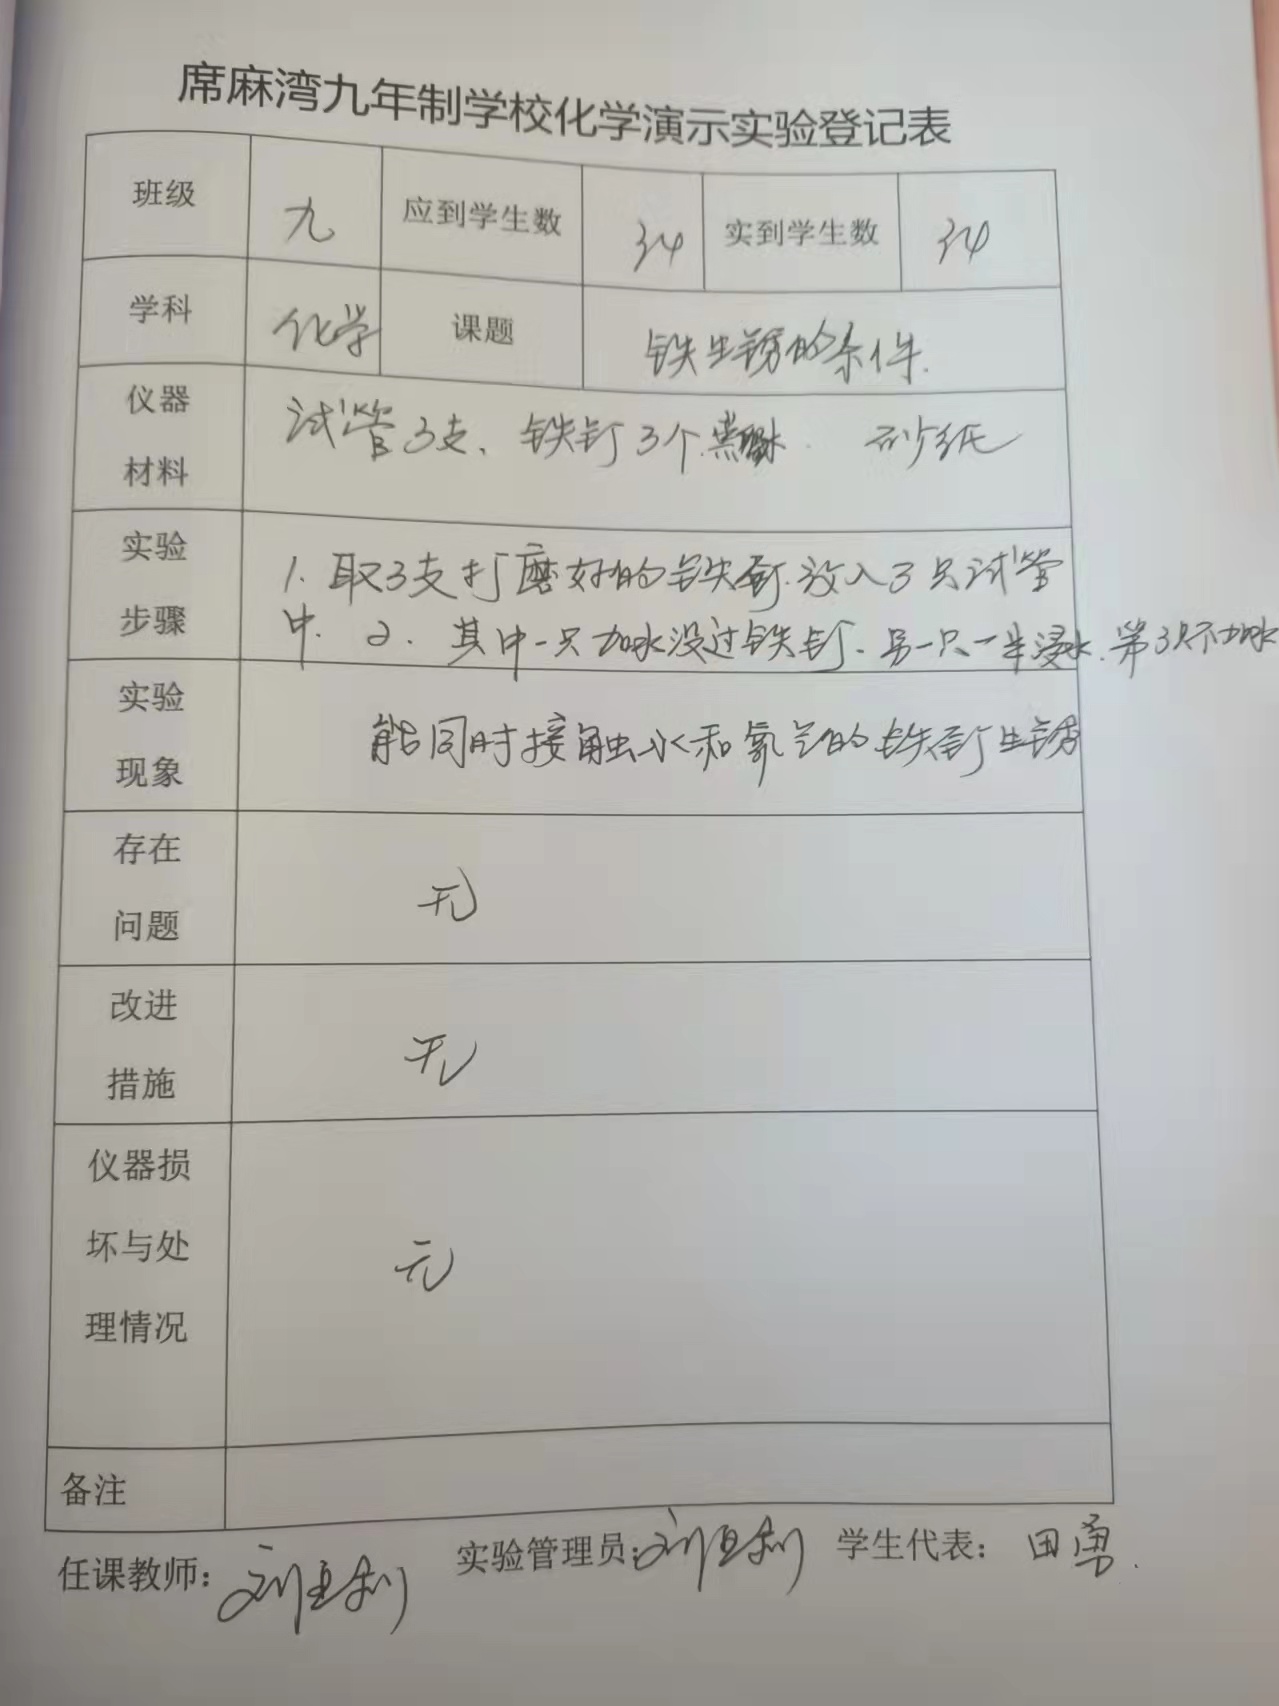 席麻湾九年制学校化学演示实验登记表
班级 九 应到学生数 34 实到学生数 34
学科 化学 课题 铁生锈的条件.
仪器 试管3支、铁钉3个.蒸馏水. 砂纸
材料
实验 1.取3支打磨好的铁钉.放入3只试管
步骤 中. 2.其中一只加水没过铁钉、另一只一半浸水.第3只不加水
实验 能同时接触水和氧气的铁钉生锈
现象
存在 无
问题
改进 无
措施
仪器损
坏与处 无
理情况
备注
任课教师: 刘 利 实验管理员: 刘 利 学生代表: 田勇.